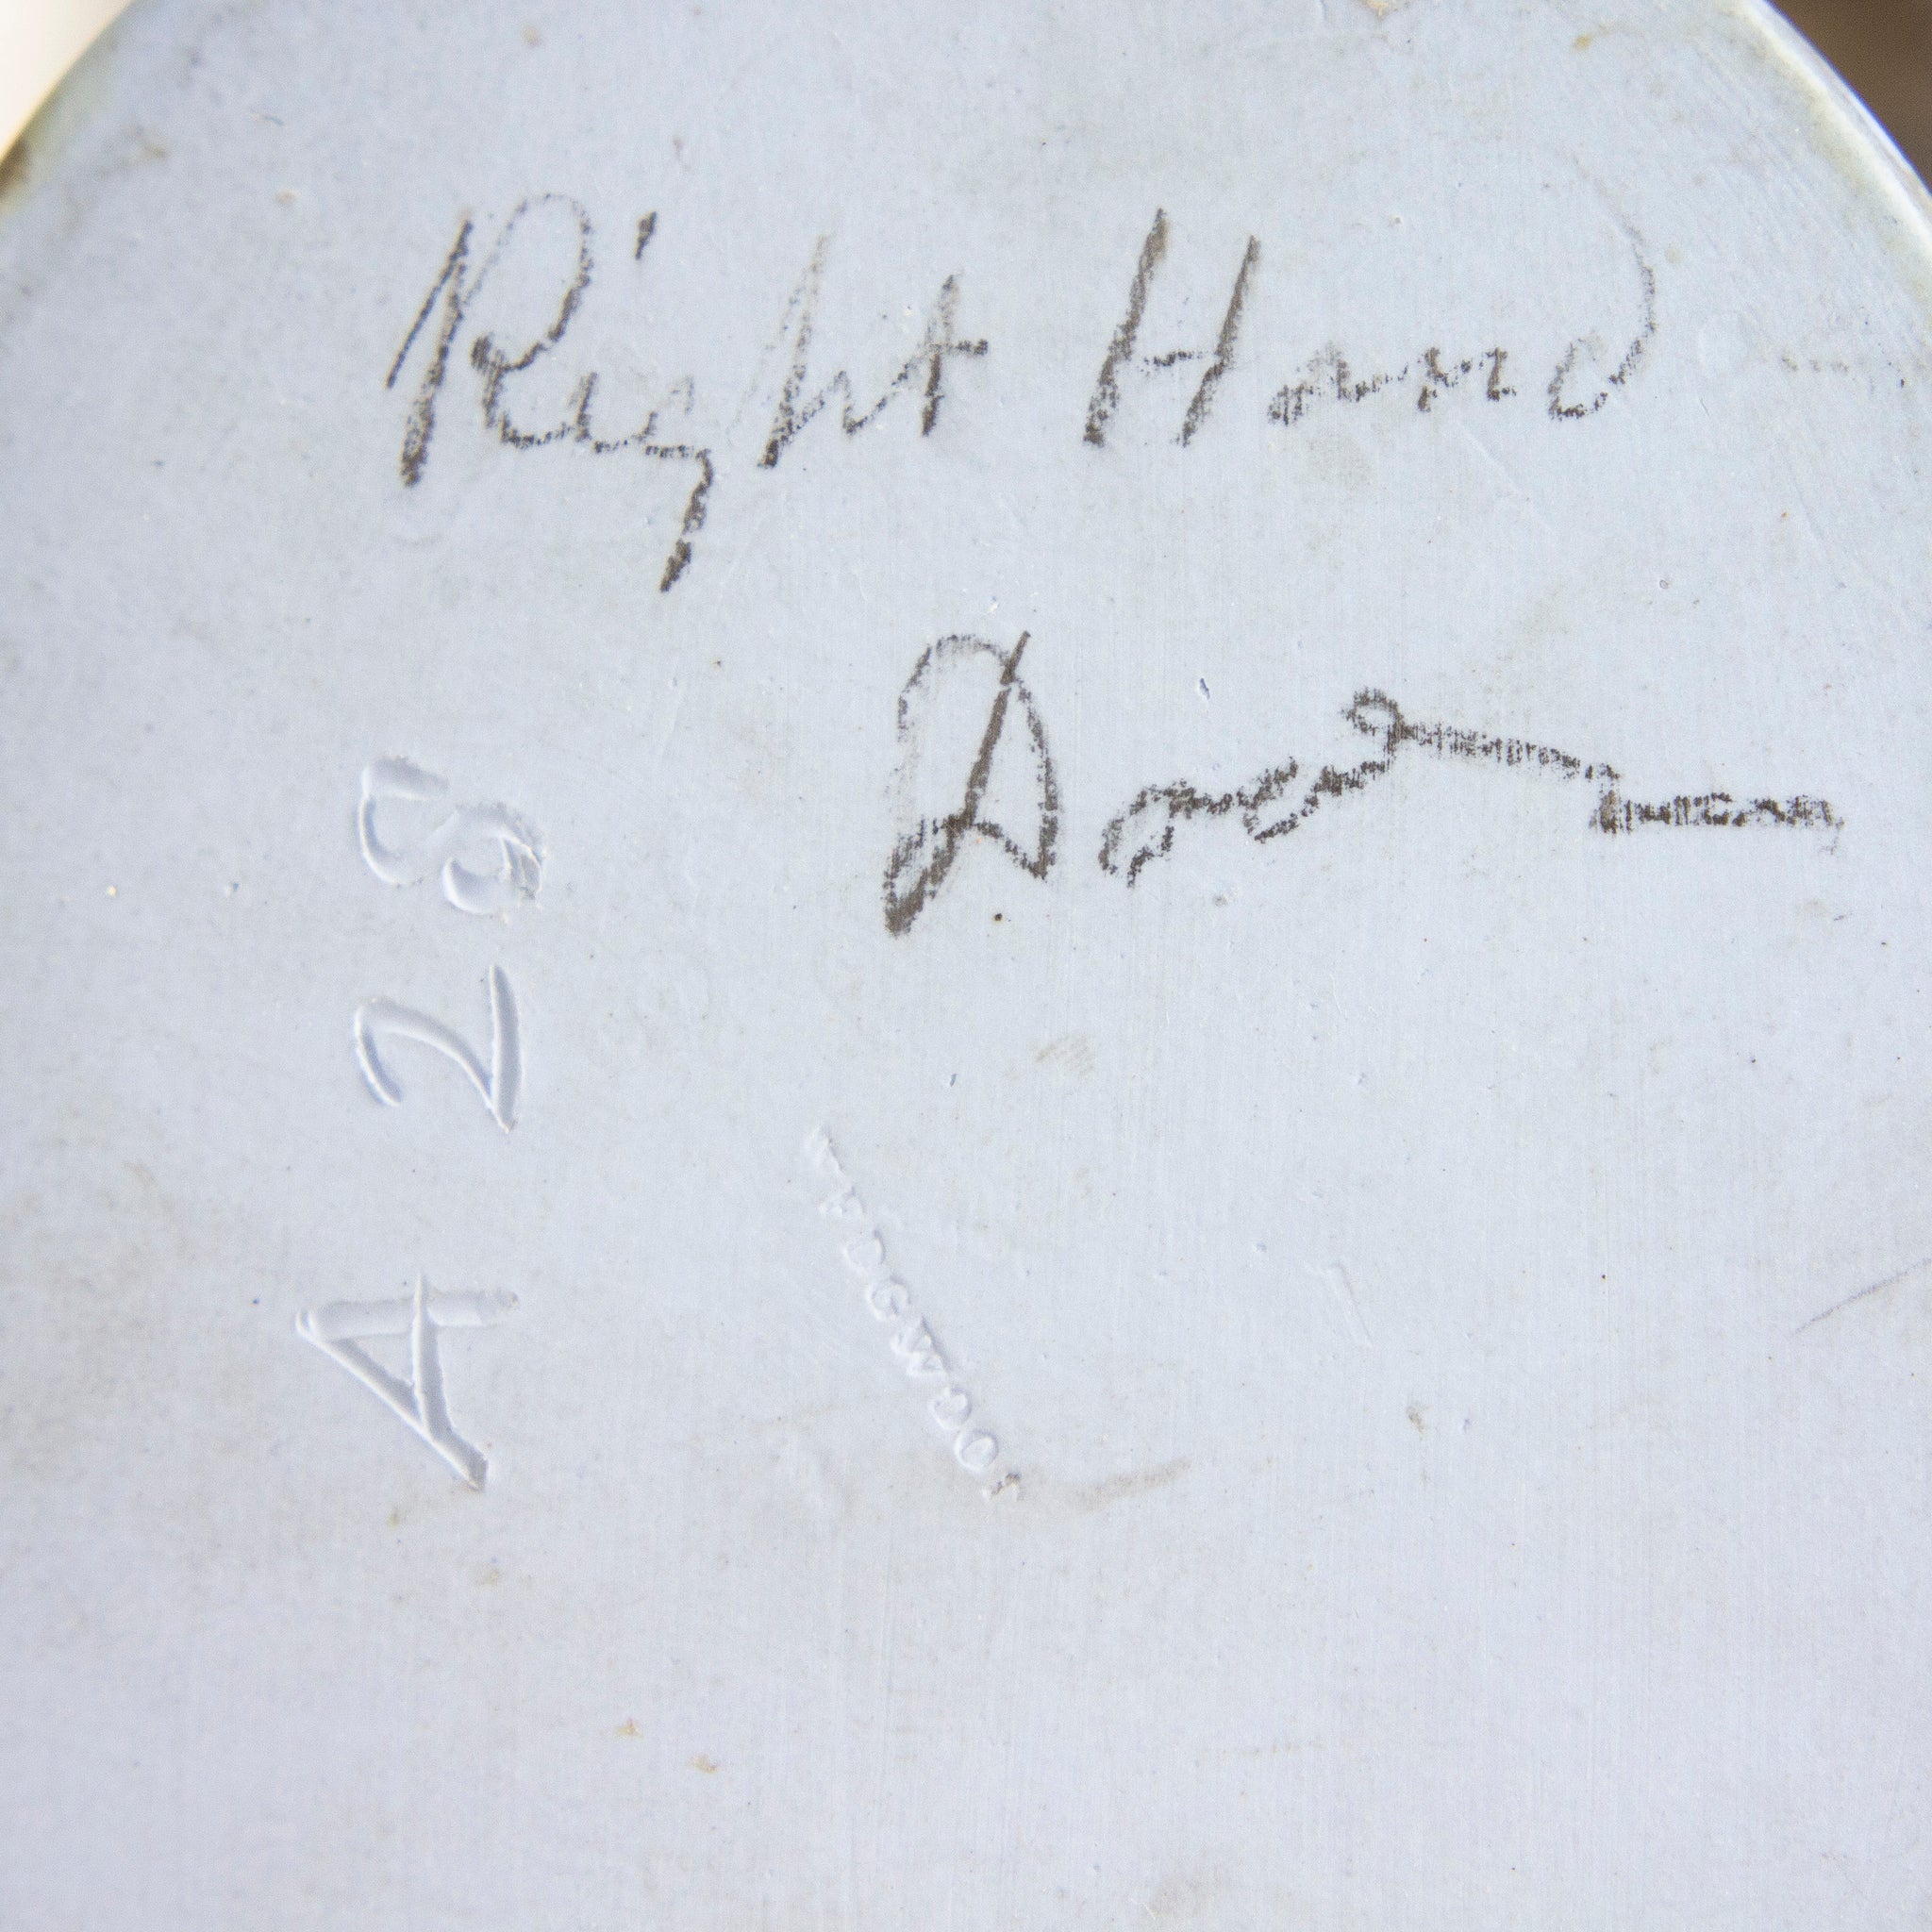 Right Hand
Door
A 28
WEDGWOOD